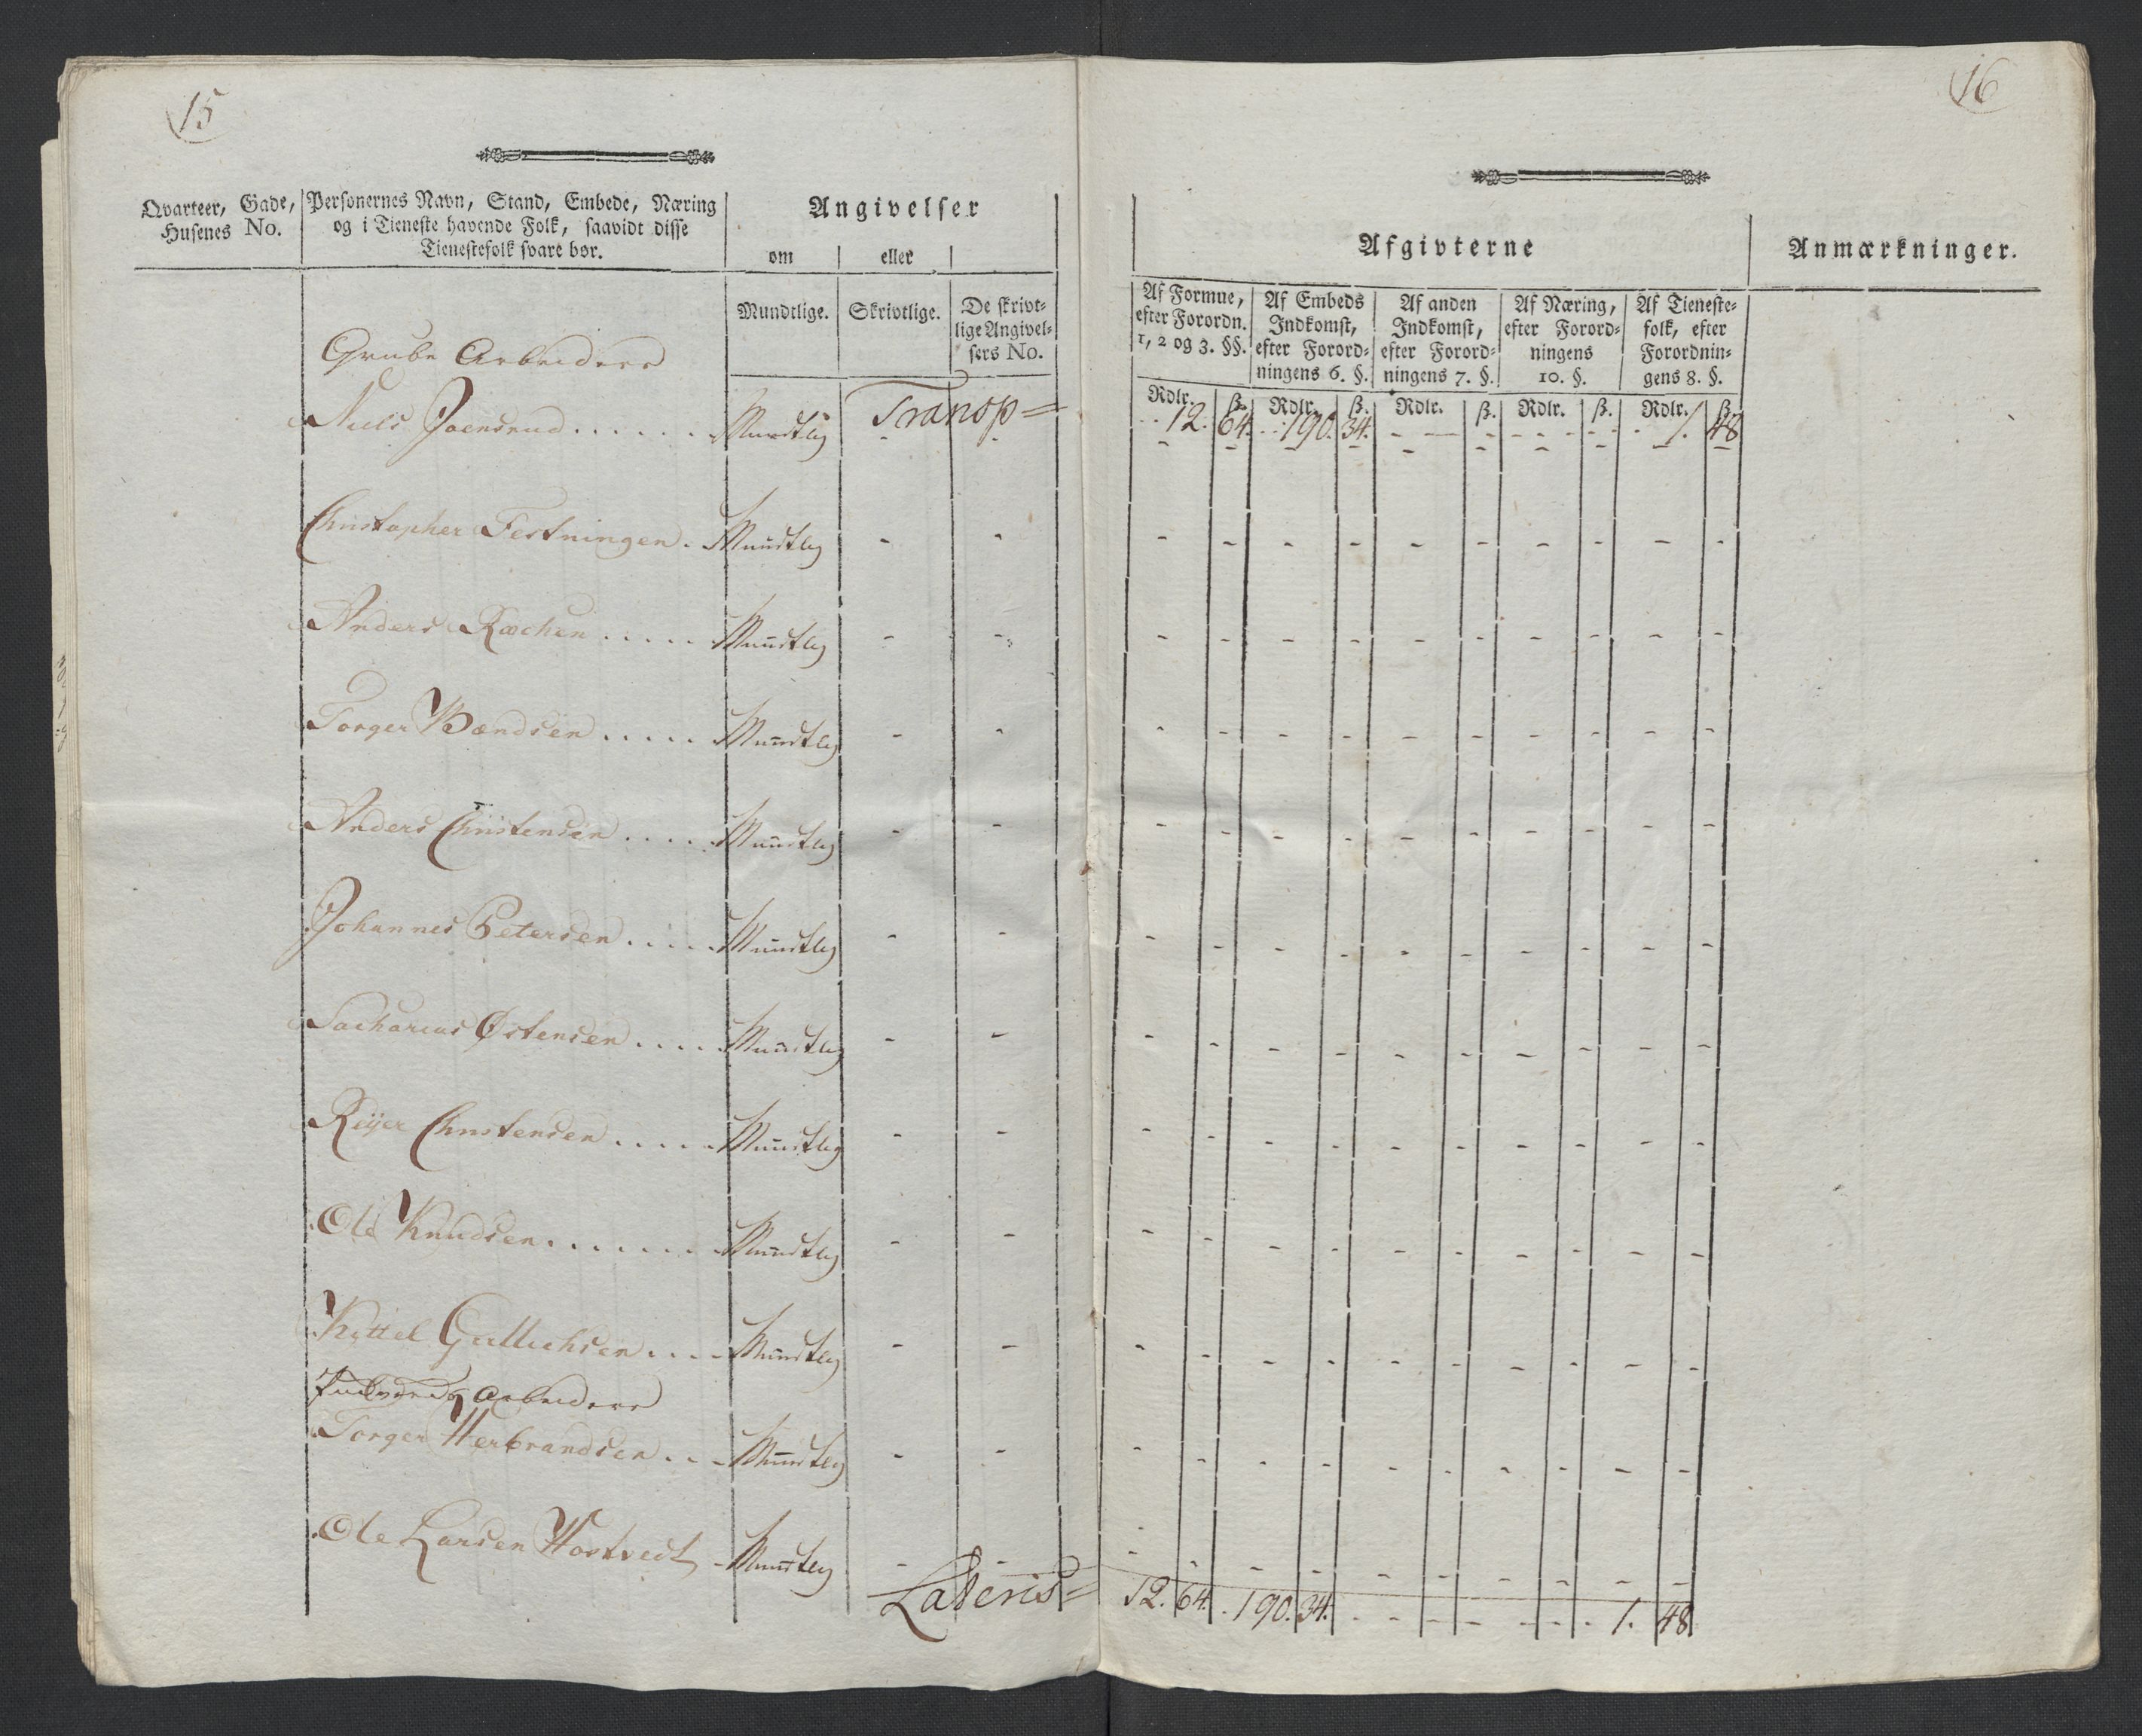 15
Qvarteer, Gade, Husenes No.
Personernes Navn, Stand, Embede, Næring
og i Tieneste havende Folk, saavidt disse
Tienestefolk svare bør.
Angivelser
om eller
Mundtlige. Skrivtlige. De skrivt-
lige Angivel-
sers No.
Grube Arbeidere
Transp =
Niels Joensrud . . . . . . Mundtlig - -
Christopher Festningen . Mundtlig - -
Anders Rochen . . . . . Mundtlig - -
Torger Bændsen . . . . . Mundtlig - -
Anders Christensen . . . . Mundtlig - -
Johannes Petersen . . . . . Mundtlig - -
Sacharias Østensen . . . . Mundtlig - -
Reijer Christensen . . . . . Mundtlig - -
Ole Knudsen . . . . . . . Mundtlig - -
Kittel Gullichsen . . . . Mundtlig - -
Arbeidere
Torger Herbrandsen . . . Mundtlig - -
Ole Larsen Hortvedt - Mundtlig - -
Lateris =
16
Afgivterne
Anmærkninger.
Af Formue,
efter Forordn.
1, 2 og 3. §§.
Af Embeds
Indkomst,
efter Forord-
ningens 6. §.
Af anden
Indkomst,
efter Forord-
ningens 7. §.
Af Næring,
efter Forord-
ningens
10. §.
Af Tieneste-
folk, efter
Forordnin-
gens 8. §.
Rdlr. ß. Rdlr. ß. Rdlr. ß. Rdlr. ß. Rdlr. ß.
12. 64. 190. 34. - - - - 1. 48
- - - - - - - - - -
- - - - - - - - - -
- - - - - - - - - -
- - - - - - - - - -
- - - - - - - - - -
- - - - - - - - - -
- - - - - - - - - -
- - - - - - - - - -
- - - - - - - - - -
- - - - - - - - - -
- - - - - - - - - -
- - - - - - - - - -
12. 64. 190. 34. - - - - 1. 48